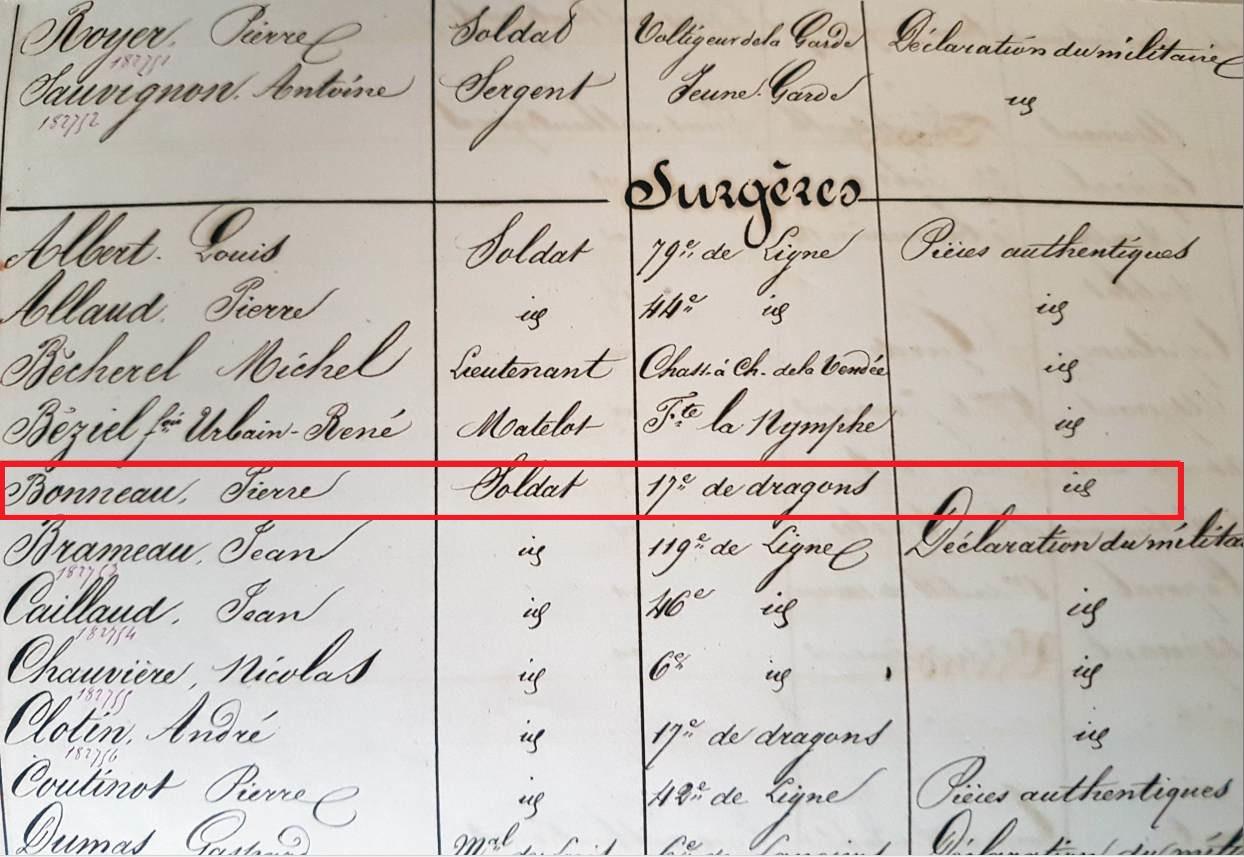 Royer, Pierre Soldat Voltigeur de la Garde Déclaration du militaire
182751
Sauvignon, Antoine Sergent Jeune Garde id
182752
Surgères
Albert. Louis Soldat 79e de Ligne Pièces authentiques
Allaud. Pierre id 44e id id
Bécherel Michel Lieutenant Chass. à Ch. de la Vendée id
Béziel Urbain-René Matelot Fte la Nymphe id
Bonneau, Pierre Soldat 17e de dragons id
Brameau, Jean id 119e de Ligne Déclaration du milita
Caillaud, Jean id 46e id id
182754
Chauvière, Nicolas id 6e id id
182755
Clotin, André id 17e de dragons id
182756
Coutinot Pierre id 42e de Ligne Pièces authentiques
Dumas Gaspard Mal Déclaration du milit